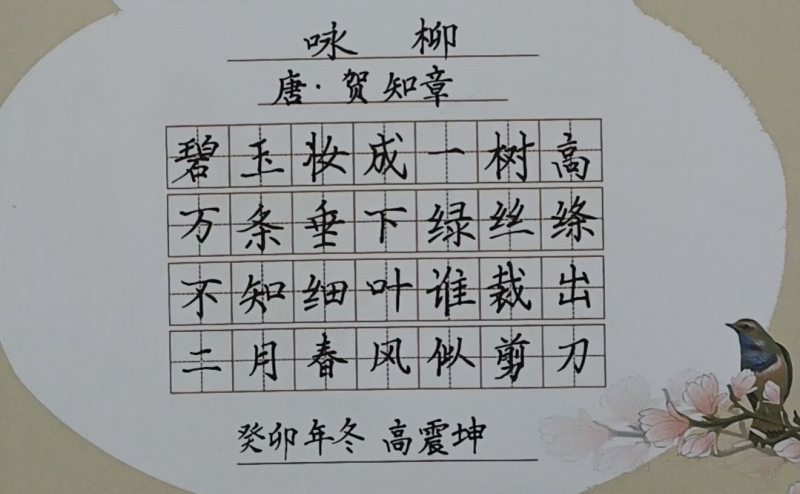 咏 柳
唐·贺知章
碧玉妆成一树高
万条垂下绿丝绦
不知细叶谁裁出
二月春风似剪刀
癸卯年冬 高震坤